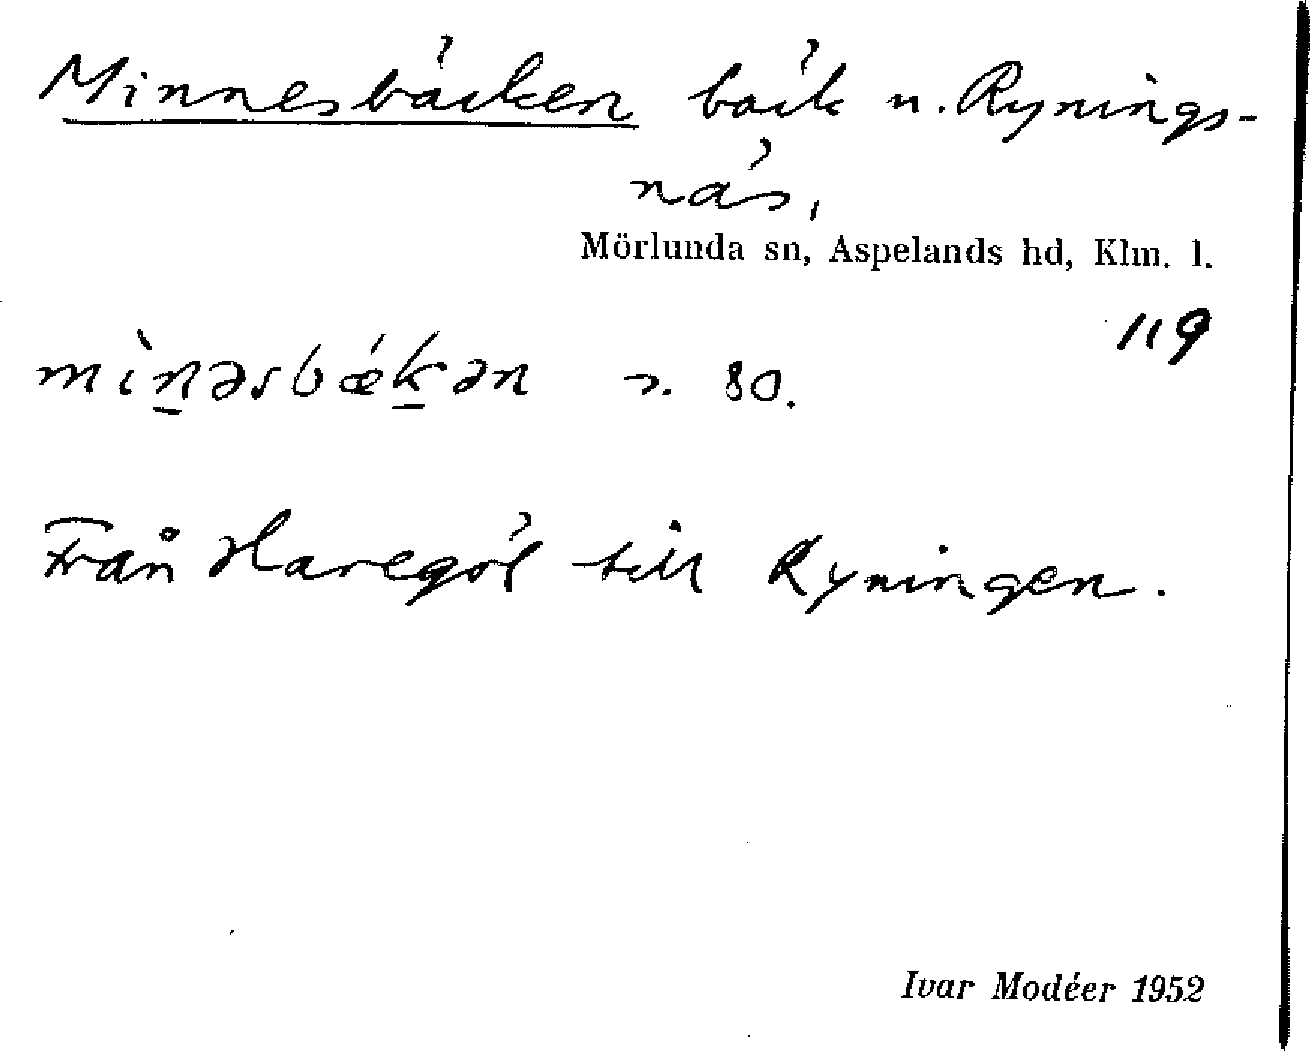 Minnesbäcken bäck n. Rynings-
näs,
Mörlunda sn, Aspelands hd, Klm. l.
119
mìn̲əsbǽk̲ən s. 80.
Från Haregöl till Ryningen.
Ivar Modéer 1952